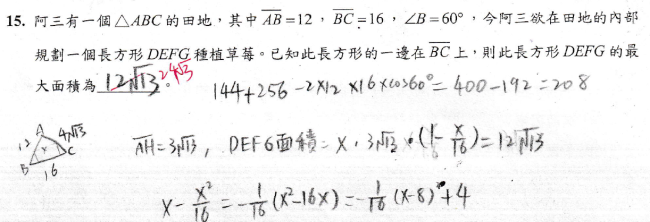 15. 阿三有一個△ABC的田地,其中 AB=12,BC=16,∠B=60°,今阿三欲在田地的內部
規劃一個長方形 DEFG 種植草莓。已知此長方形的一邊在 BC 上,則此長方形 DEFG 的最
大面積為 12√13 。 24√3
144+256-2×12×16×cos60°=400-192=208
A 4√13
12 x C
B 16
AH=3√13, DEFG面積=x·3√13·(1-x/16)=12√13
x-x²/16=-1/16(x²-16x)=-1/16(x-8)²+4